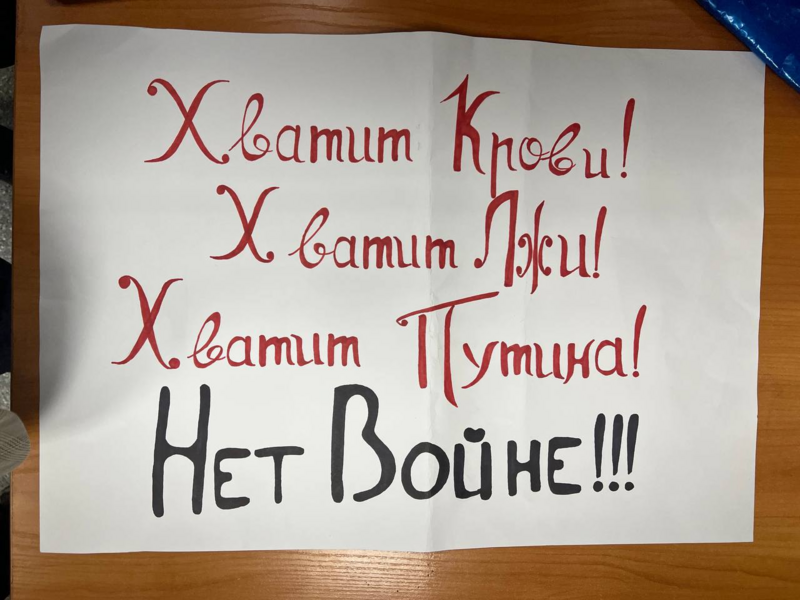 Хватит Крови!
Хватит Лжи!
Хватит Путина!
Нет Войне!!!